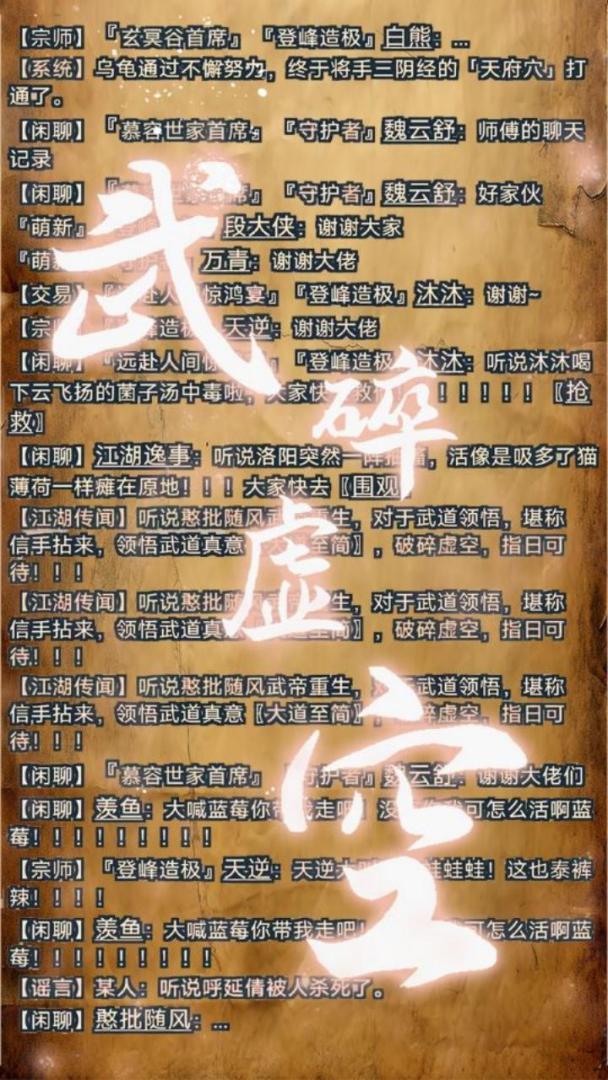 【宗师】『玄冥谷首席』『登峰造极』白熊：...
【系统】乌龟通过不懈努力，终于将手三阴经的「天府穴」打
通了。
【闲聊】『慕容世家首席』『守护者』魏云舒：师傅的聊天
记录
【闲聊】『 席』『守护者』魏云舒：好家伙
『萌新』 段大侠：谢谢大家
『萌 万青：谢谢大佬
【交易】『远赴人间惊鸿宴』『登峰造极』沐沐：谢谢~
【宗 峰造极』天逆：谢谢大佬
【闲聊】『远赴人间惊 』『登峰造极』沐沐：听说沐沐喝
下云飞扬的菌子汤中毒啦，大家快 ！！！！！！〖抢
救〗
【闲聊】江湖逸事：听说洛阳突然一阵 ，活像是吸多了猫
薄荷一样瘫在原地！！！大家快去〖围观〗
【江湖传闻】听说憨批随风武帝重生，对于武道领悟，堪称
信手拈来，领悟武道真意〖大道至简〗，破碎虚空，指日可
待！！！
【江湖传闻】听说憨批随风武帝重生，对于武道领悟，堪称
信手拈来，领悟武道真意〖大道至简〗，破碎虚空，指日可
待！！！
【江湖传闻】听说憨批随风武帝重生，对于武道领悟，堪称
信手拈来，领悟武道真意〖大道至简〗，破碎虚空，指日可
待！！！
【闲聊】『慕容世家首席』『守护者』魏云舒：谢谢大佬们
【闲聊】羡鱼：大喊蓝莓你带我走吧！没 可怎么活啊蓝
莓！！！！！！！！！
【宗师】『登峰造极』天逆：天逆大 哇哇哇！这也泰裤
辣！！！！
【闲聊】羡鱼：大喊蓝莓你带我走吧！ 可怎么活啊蓝
莓！！！！！！！！！
【谣言】某人：听说呼延倩被人杀死了。
【闲聊】憨批随风：...
武
碎
虚
空